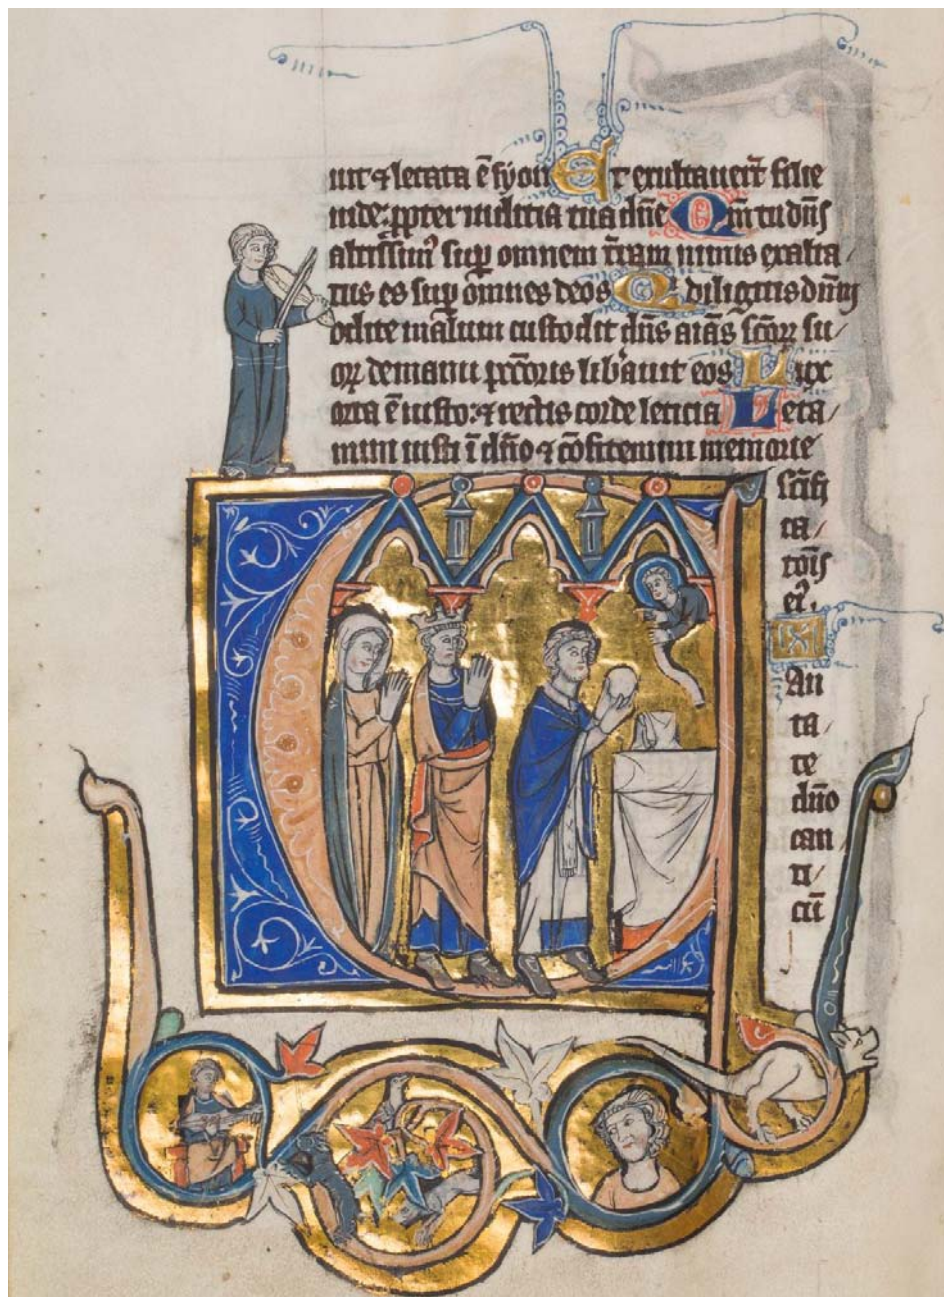 uit ⁊ letata ē syon Et exultauert filie
iude: ꝓpter iuditia tua dn̄e Qm̄ tu dn̄s
altissim᷒ suꝑ omnem t̄ram nimis exalta/
tus es suꝑ omnes deos Qi diligitis dn̄m
odite malum custodit dn̄s aīas sc̄oꝝ su/
oꝝ de manu pc̄c̄oris lib̄auit eos Lux
orta ē iusto: ⁊ rectis corde leticia Leta/
mini iusti ī dn̄o ⁊ c̄ofitemini memorie
sc̄ifi
ca/
toīs
ei᷒.
An
ta/
te
dn̄o
can/
ti/
cū